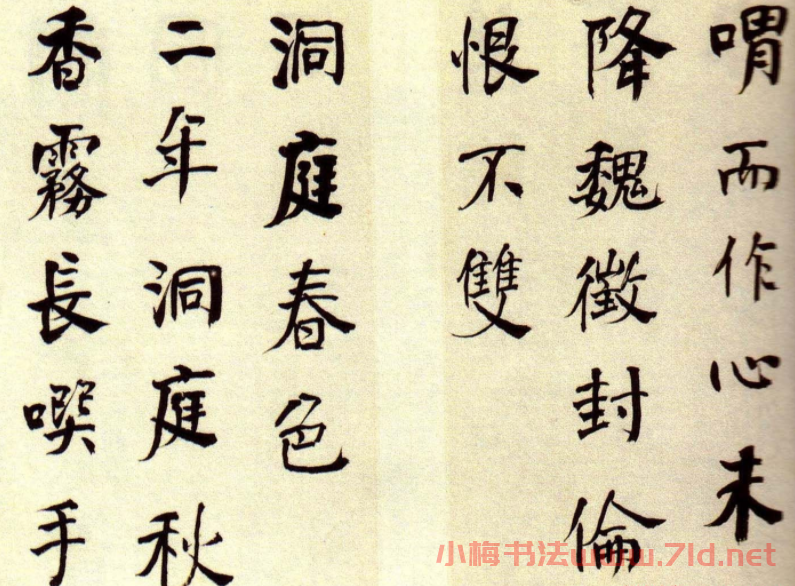 喟而作心未
降魏徵封倫
恨不雙
洞庭春色
二年洞庭秋
香霧長噀手
小梅书法www.7ld.net